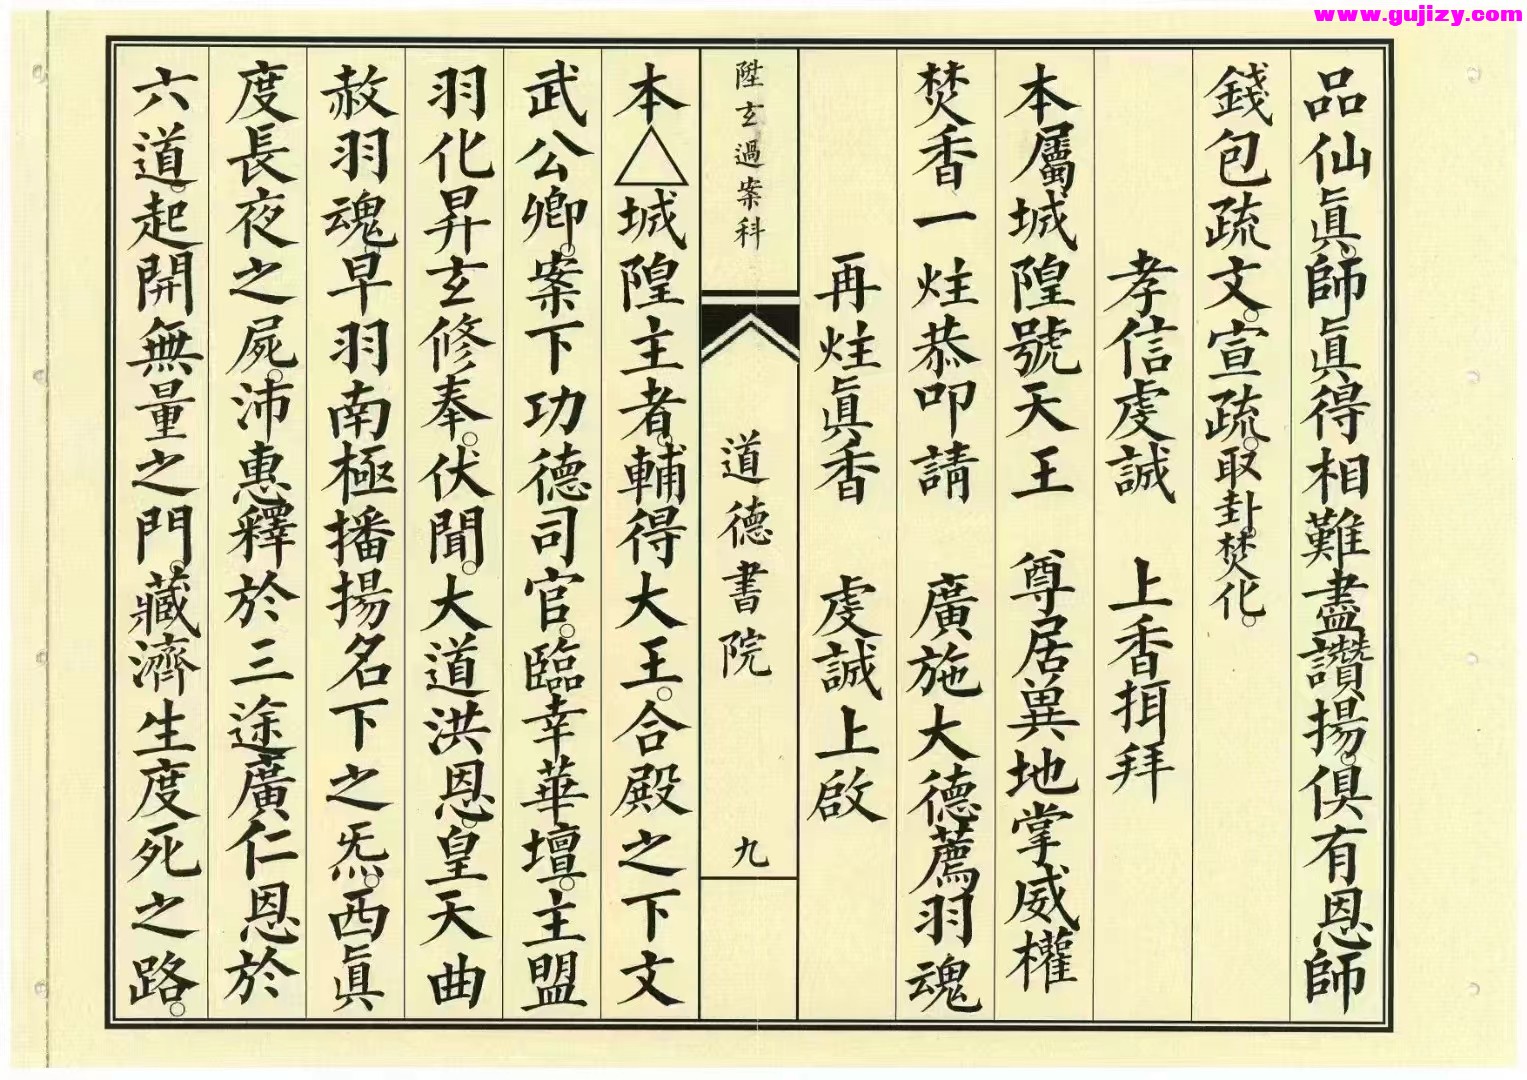 www.gujizy.com
品仙眞。師眞得相難盡讚揚。俱有恩師
錢包疏文。宣疏。取卦。焚化。
孝信虔誠 上香揖拜
本屬城隍號天王 尊居異地掌威權
焚香一炷恭叩請 廣施大德薦羽魂
再炷眞香 虔誠上啟
陞玄過案科 道德書院 九
本△城隍主者。輔得大王。合殿之下文
武公卿。案下功德司官。臨幸華壇。主盟
羽化昇玄修奉。伏聞。大道洪恩。皇天曲
赦羽魂。早羽南極播揚名下之炁。西眞
度長夜之屍。沛惠釋於三途廣仁恩於
六道。起開無量之門。藏濟生度死之路。